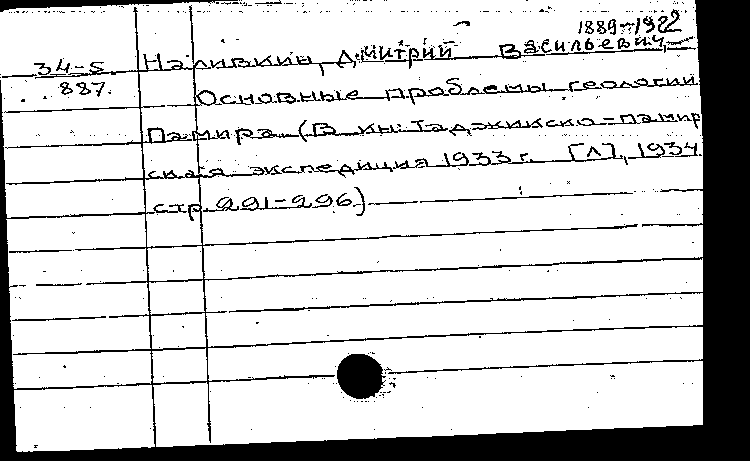 1889-1982
34-5 Наливкин, Дмитрий Васильевич
887. Основные проблемы геологии
Памира (В кн: Таджикско=памир
ская экспедиция 1933 г. [Л], 1934
стр. 291-296)